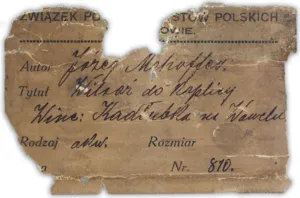 ZWIĄZEK PO STÓW POLSKICH
OWIE.
Autor Józef Mehoffer.
Tytuł Witraż do kaplicy
Winc: Kadłubka na Wawelu
Rodzaj akw. Rozmiar
a Nr. 810.